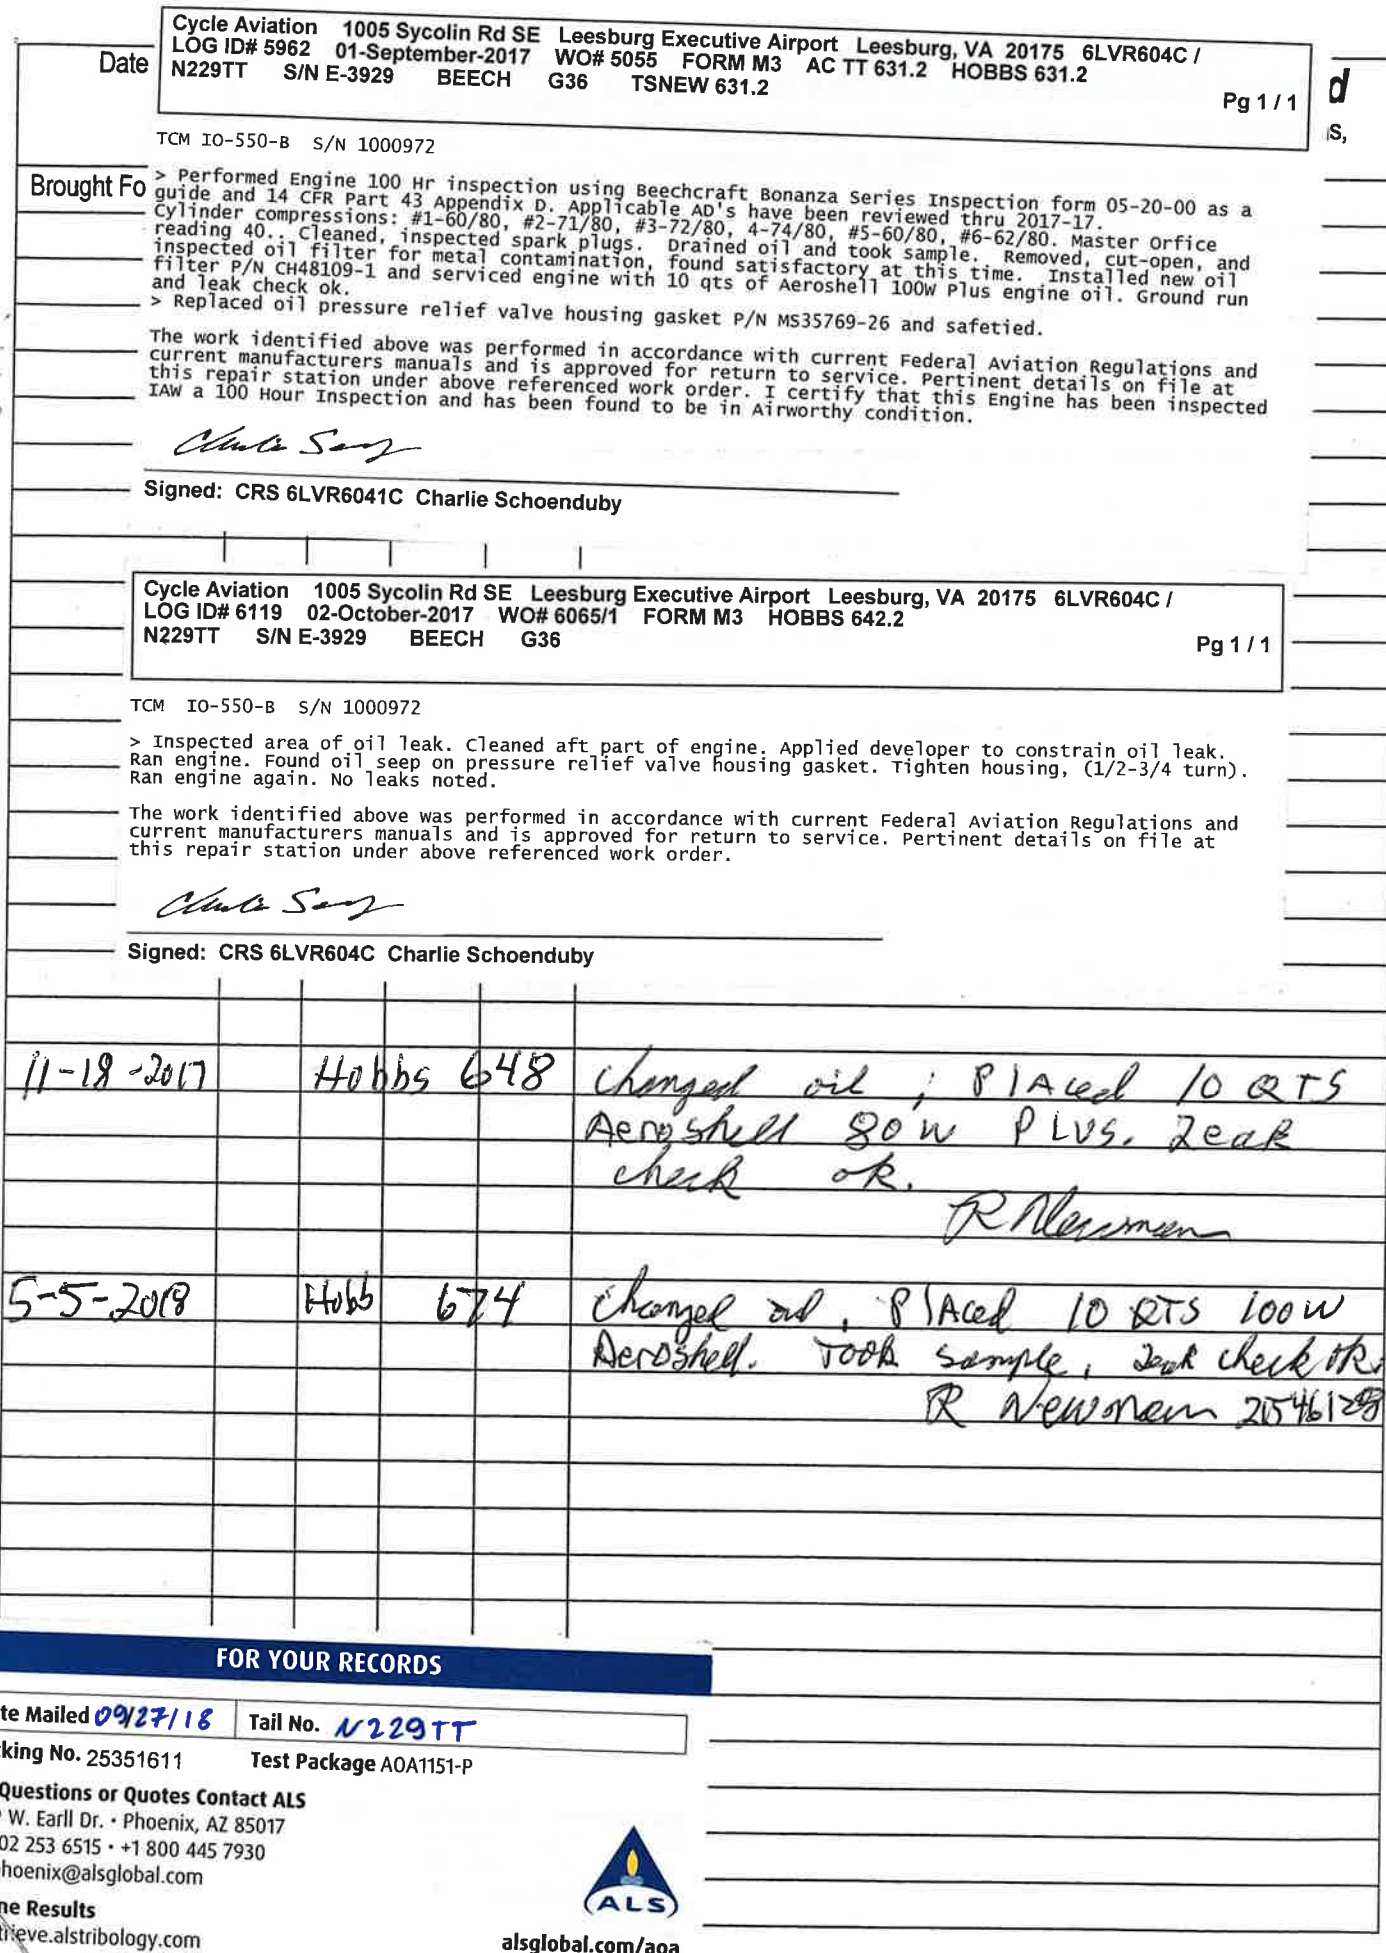 Cycle Aviation 1005 Sycolin Rd SE Leesburg Executive Airport Leesburg, VA 20175 6LVR604C /
LOG ID# 5962 01-September-2017 WO# 5055 FORM M3 AC TT 631.2 HOBBS 631.2
N229TT S/N E-3929 BEECH G36 TSNEW 631.2
Pg 1 / 1
Date
d
s,
TCM IO-550-B S/N 1000972
Brought Fo
> Performed Engine 100 Hr inspection using Beechcraft Bonanza Series Inspection form 05-20-00 as a
guide and 14 CFR Part 43 Appendix D. Applicable AD's have been reviewed thru 2017-17.
Cylinder compressions: #1-60/80, #2-71/80, #3-72/80, 4-74/80, #5-60/80, #6-62/80. Master Orfice
reading 40.. Cleaned, inspected spark plugs. Drained oil and took sample. Removed, cut-open, and
inspected oil filter for metal contamination, found satisfactory at this time. Installed new oil
filter P/N CH48109-1 and serviced engine with 10 qts of Aeroshell 100W Plus engine oil. Ground run
and leak check ok.
> Replaced oil pressure relief valve housing gasket P/N MS35769-26 and safetied.
The work identified above was performed in accordance with current Federal Aviation Regulations and
current manufacturers manuals and is approved for return to service. Pertinent details on file at
this repair station under above referenced work order. I certify that this Engine has been inspected
IAW a 100 Hour Inspection and has been found to be in Airworthy condition.
Signed: CRS 6LVR6041C Charlie Schoenduby
Cycle Aviation 1005 Sycolin Rd SE Leesburg Executive Airport Leesburg, VA 20175 6LVR604C /
LOG ID# 6119 02-October-2017 WO# 6065/1 FORM M3 HOBBS 642.2
N229TT S/N E-3929 BEECH G36
Pg 1 / 1
TCM IO-550-B S/N 1000972
> Inspected area of oil leak. Cleaned aft part of engine. Applied developer to constrain oil leak.
Ran engine. Found oil seep on pressure relief valve housing gasket. Tighten housing, (1/2-3/4 turn).
Ran engine again. No leaks noted.
The work identified above was performed in accordance with current Federal Aviation Regulations and
current manufacturers manuals and is approved for return to service. Pertinent details on file at
this repair station under above referenced work order.
Signed: CRS 6LVR604C Charlie Schoenduby
11-18-2017 Hobbs 648 Changed oil ; PlAced 10 QTS
Aeroshell 80w PLUS. Leak
check ok.
R Newman
5-5-2018 Hobb 674 Changed oil, PlAced 10 QTS 100W
Aeroshell. Took sample, Leak check ok.
R Newman
FOR YOUR RECORDS
te Mailed 09/27/18 Tail No. N229TT
king No. 25351611 Test Package AOA1151-P
Questions or Quotes Contact ALS
W. Earll Dr. • Phoenix, AZ 85017
02 253 6515 • +1 800 445 7930
hoenix@alsglobal.com
ne Results
trieve.alstribology.com
ALS
alsglobal.com/aoa